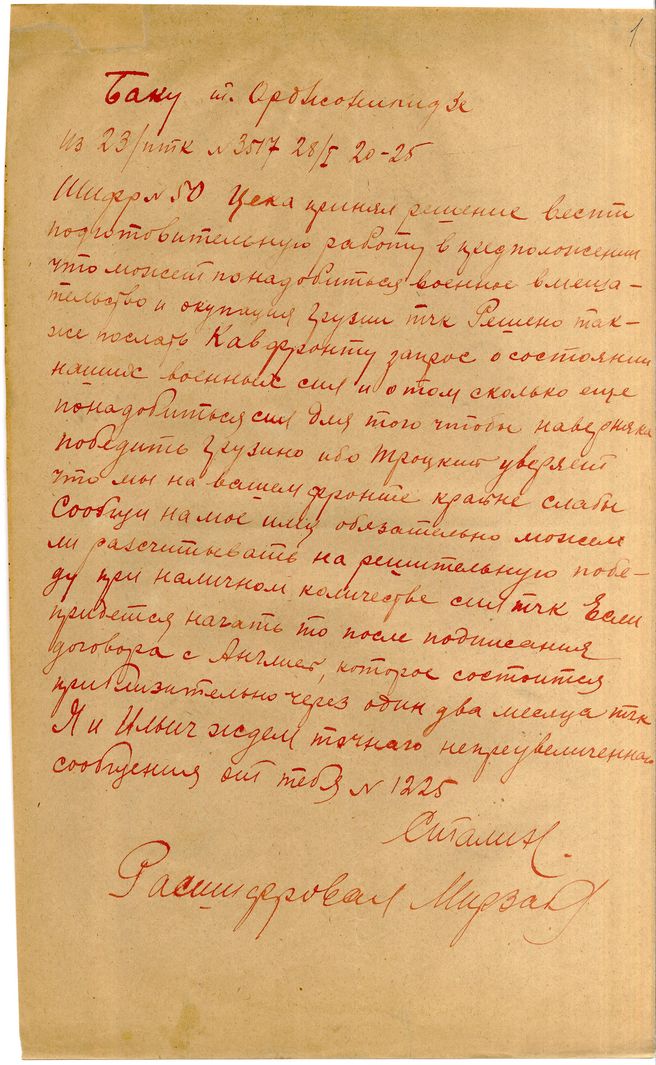 1
Баку т. Орджоникидзе
Из 23/птк N3517 28/I 20-25
Шифр N 50 Цека принял решение вести
подготовительную работу в предположении
что может понадобиться военное вмеша-
тельство и окупация Грузии тчк Решено так-
же послать Кавфронту запрос о состоянии
наших военных сил и о том сколько еще
понадобиться сил для того чтобы наверняка
победить Грузию ибо Троцкий уверяет
что мы на вашем фронте крайне слабы
Сообщи на мое имя обязательно можем
ли расчитывать на решительную побе-
ду при наличном количестве сил тчк Если
придется начать то после подписания
договора с Англией, которое состоится
приблизительно через один два месяца тчк
Я и Ильич ждем точнаго непреувеличеннаго
сообщения от тебя N 1225
Сталин.
Расшифровал